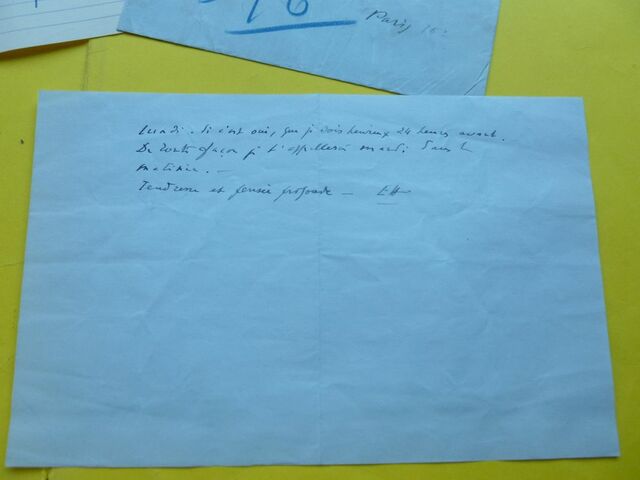 16
Paris 16e
lundi. Si c'est oui, que je sois heureux 24 heures avant.
De toute façon je t'appellerai mardi dans la
matinée. —
Tendresse et pensée profonde — EH